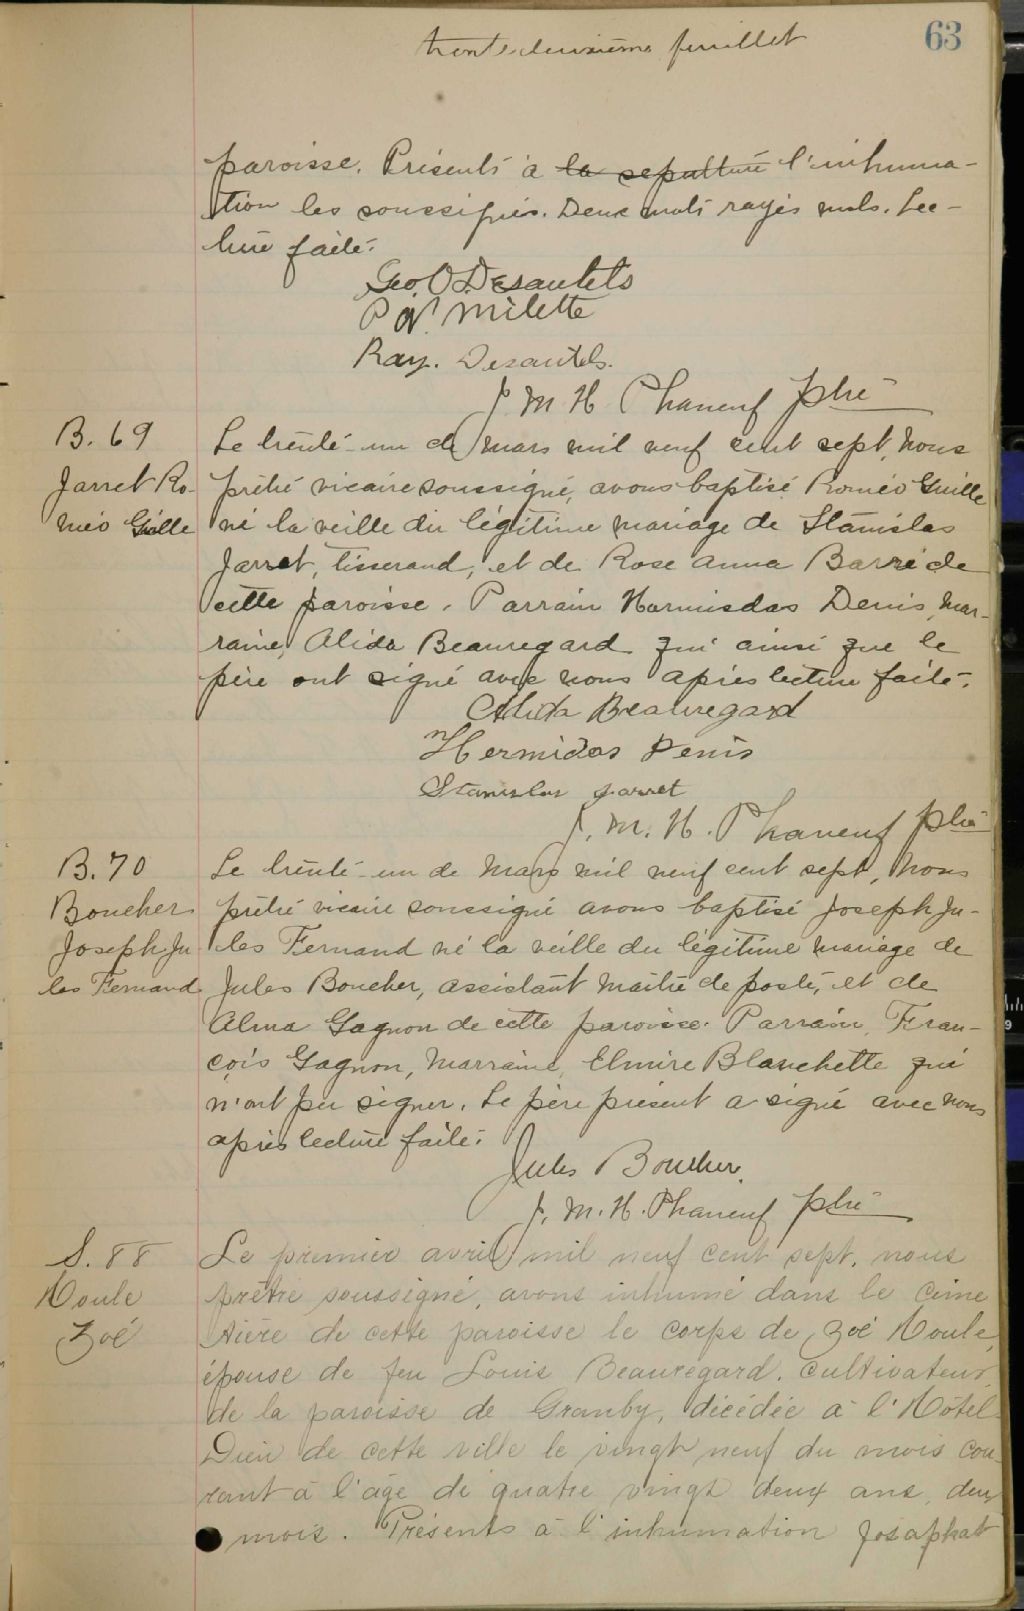 trente-deuxième feuillet
63
paroisse. Présents à la sepulture l'inhuma-
tion les soussignés. Deux mots rayés nuls. Lec-
ture faite.
Geo. O. Desautels
P. Milette
Ray. Desautels.
J. M. H. Phaneuf ptre
B. 69
Jarret Ro-
méo Guille
Le trente-un de mars mil neuf cent sept, nous
prêtre vicaire soussigné, avons baptisé Roméo Guille
né la veille du légitime mariage de Stanislas
Jarret, tisserand, et de Rose Anna Barré de
cette paroisse. Parrain Hormisdas Denis, mar-
raine, Alida Beauregard qui ainsi que le
père ont signé avec nous après lecture faite.
Alida Beauregard
Hermidas Denis
Stanislas Jarret
J. M. H. Phaneuf ptre
B. 70
Boucher
Joseph Ju
les Fernand
Le trente-un de Mars mil neuf cent sept, nous
prêtre vicaire soussigné avons baptisé Joseph Ju-
les Fernand né la veille du légitime mariage de
Jules Boucher, assistant maître de poste, et de
Alma Gagnon de cette paroisse. Parrain, Fran-
çois Gagnon, Marraine, Elmire Blanchette qui
n'ont pu signer. Le père présent a signé avec nous
après lecture faite.
Jules Boucher.
J. M. H. Phaneuf ptre
S. 88
Houle
Zoé
Le premier avril mil neuf cent sept, nous
prêtre soussigné, avons inhumé dans le cime
tière de cette paroisse le corps de Zoé Houle,
épouse de feu Louis Beauregard, cultivateur,
de la paroisse de Granby, décédée à l'Hôtel-
Dieu de cette ville le vingt neuf du mois cou-
rant à l'âge de quatre vingt deux ans, deux
mois. Présents à l'inhumation Josaphat